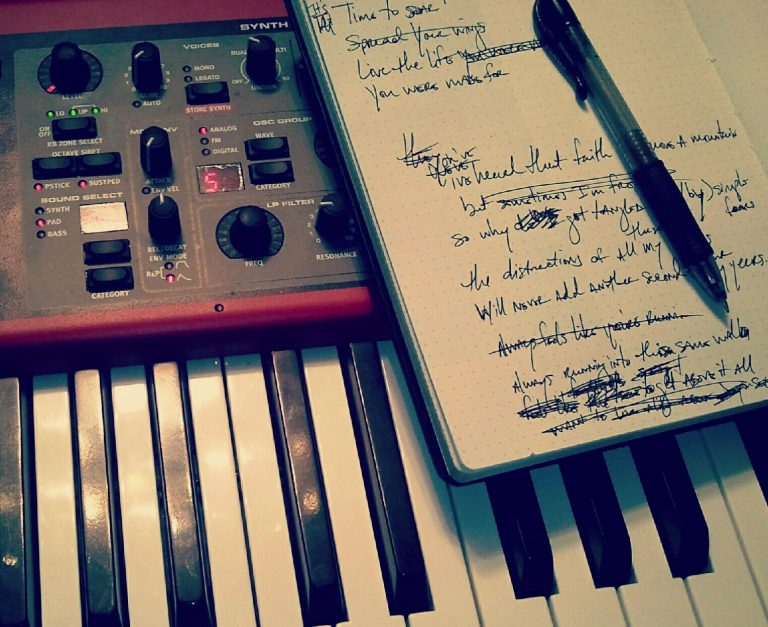 SYNTH
VOICES
MONO
LEGATO
STORE SYNTH
OFF
10
UNISON
AUTO
LO UP HI
ON
OFF
KB ZONE SELECT
OCTAVE SHIFT
PSTICK
SUSTPED
SOUND SELECT
SYNTH
PAD
BASS
CATEGORY
ATTACK
ENV VEL
REL/DECAY
ENV MODE
ANALOG
FM
DIGITAL
OSC GROUP
WAVE
CATEGORY
LP FILTER
FREQ
RESONANCE
0
10
Time to soar!
Spread your wings
Live the life
You were made for
I've heard that faith move a mountain
but sometimes I'm
so why get tangled (by) simple
fears
the distractions of all my
Will never add another second
years.
Always feels like you're runnin
Always running into this same wall
above it all
want to